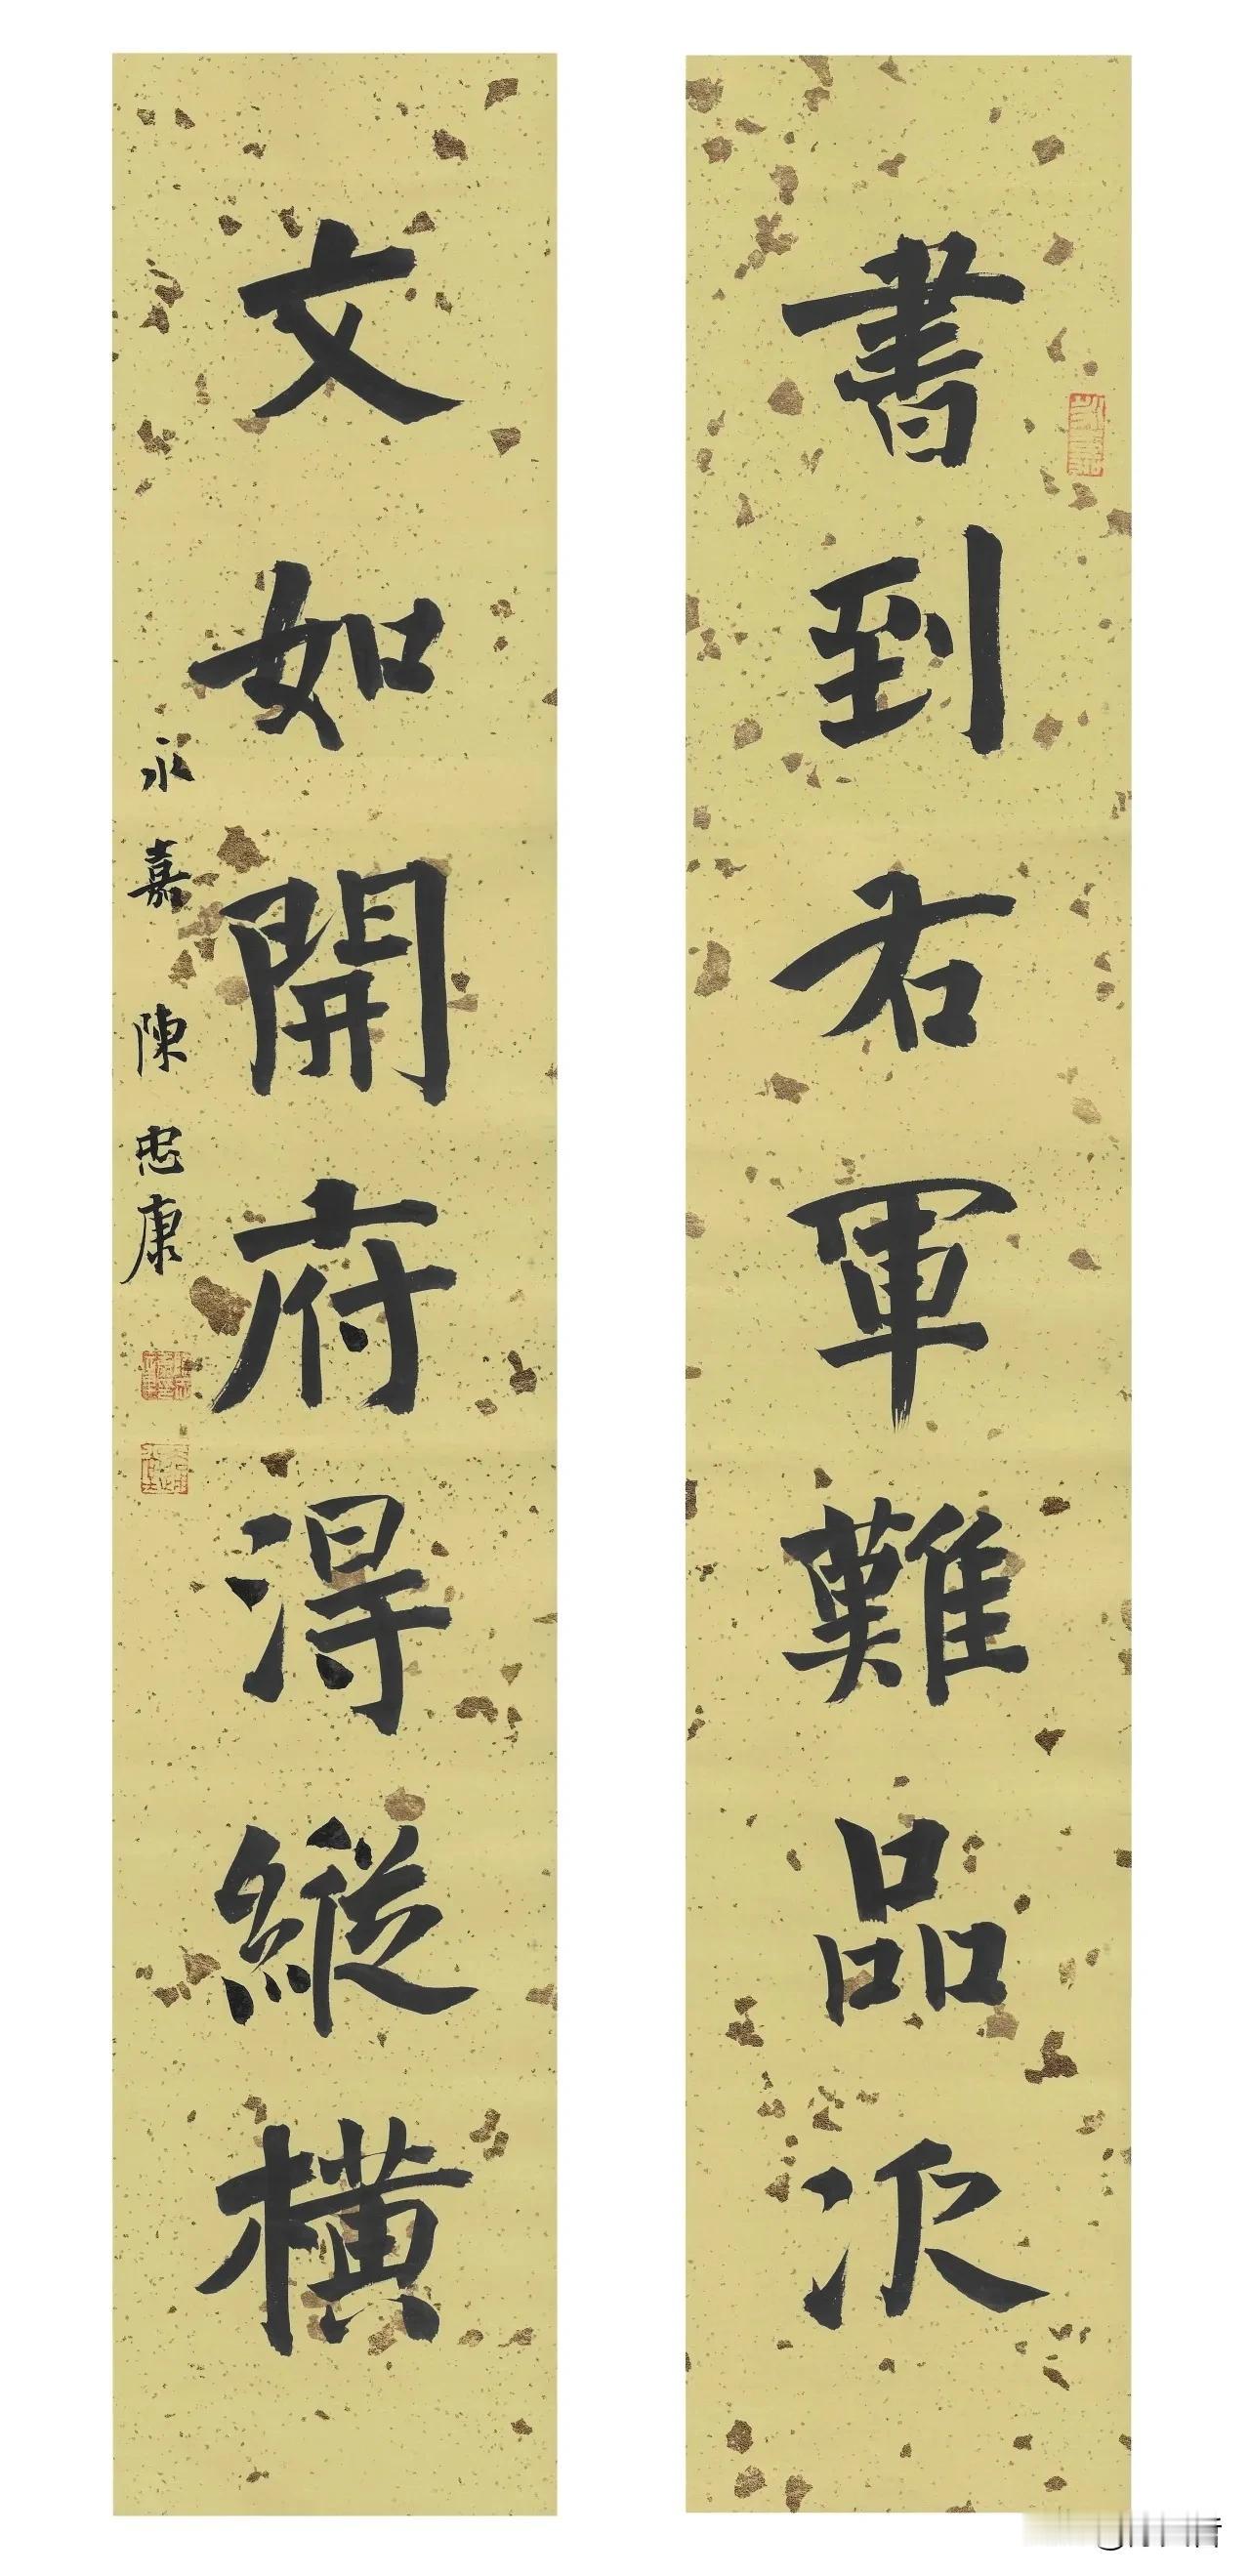 書到右軍難品次
文如開府得縱橫
永嘉陳忠康